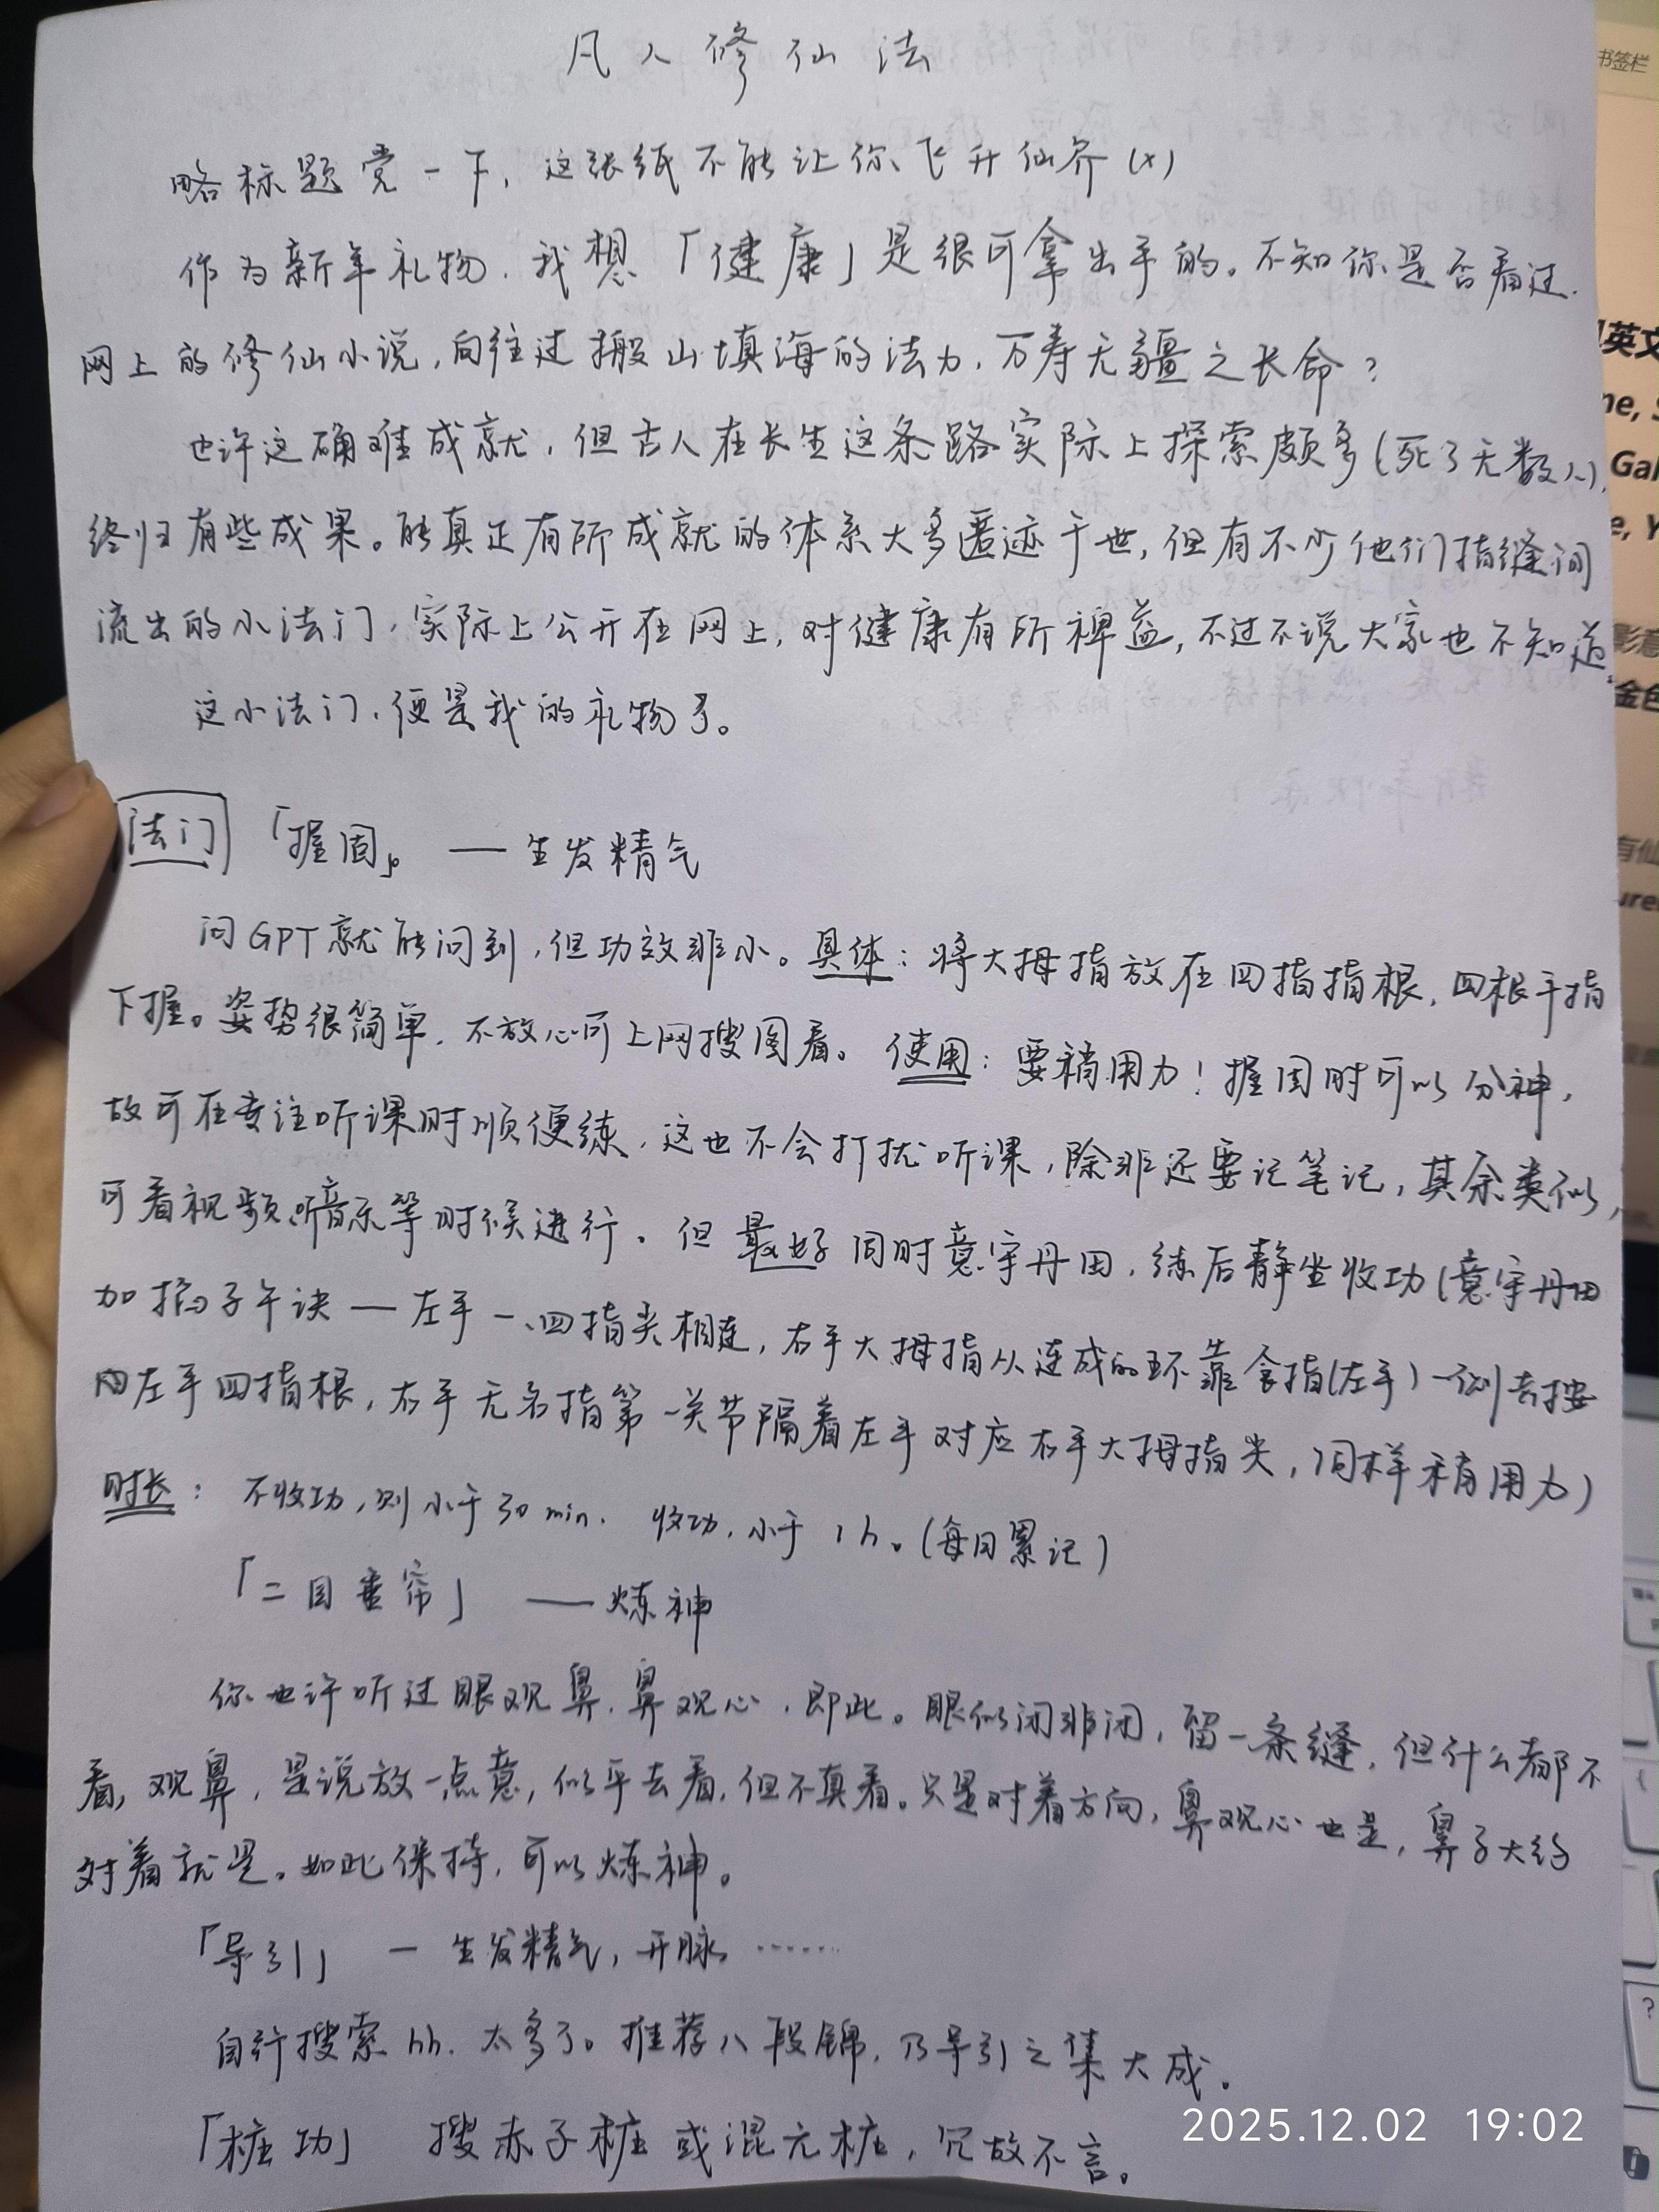 凡人修仙法
略标题党一下，这张纸不能让你飞升仙界(x)
作为新年礼物，我想「健康」是很可拿出手的。不知你是否看过
网上的修仙小说，向往过搬山填海的法力，万寿无疆之长命？
也许这确难成就，但古人在长生这条路实际上探索颇多(死了无数人)，
终归有些成果。能真正有所成就的体系大多匿迹于世，但有不少他们指缝间
流出的小法门，实际上公开在网上，对健康有所裨益，不过不说大家也不知道。
这小法门，便是我的礼物了。
法门 「握固」。 — 生发精气
问GPT就能问到，但功效非小。具体：将大拇指放在四指指根，四根手指
下握。姿势很简单，不放心可上网搜图看。使用：要稍用力！握固时可以分神，
故可在专注听课时顺便练，这也不会打扰听课，除非还要记笔记，其余类似，
可看视频、听音乐等时候进行。但最好同时意守丹田，练后静坐收功(意守丹田
加掐子午诀—左手一、四指尖相连，右手大拇指从连成的环靠食指(左手)一侧去按
内左手四指根，右手无名指第一关节隔着左手对应右手大拇指尖，同样稍用力)
时长：不收功，则小于30min. 收功，小于1h。(每日累记)
「二目垂帘」 — 炼神
你也许听过眼观鼻，鼻观心，即此。眼似闭非闭，留一条缝，但什么都不
看，观鼻，是说放一点意，似乎去看，但不真看。只是对着方向，鼻观心也是，鼻子大约
对着就是。如此保持，可以炼神。
「导引」 — 生发精气，开脉……
自行搜索hh. 太多了。推荐八段锦，乃导引之集大成。
「桩功」 搜赤子桩或混元桩，冗故不言。
2025.12.02 19:02
书签栏
英文
ne, S
Gal
e, Y
影意
金色
有仙